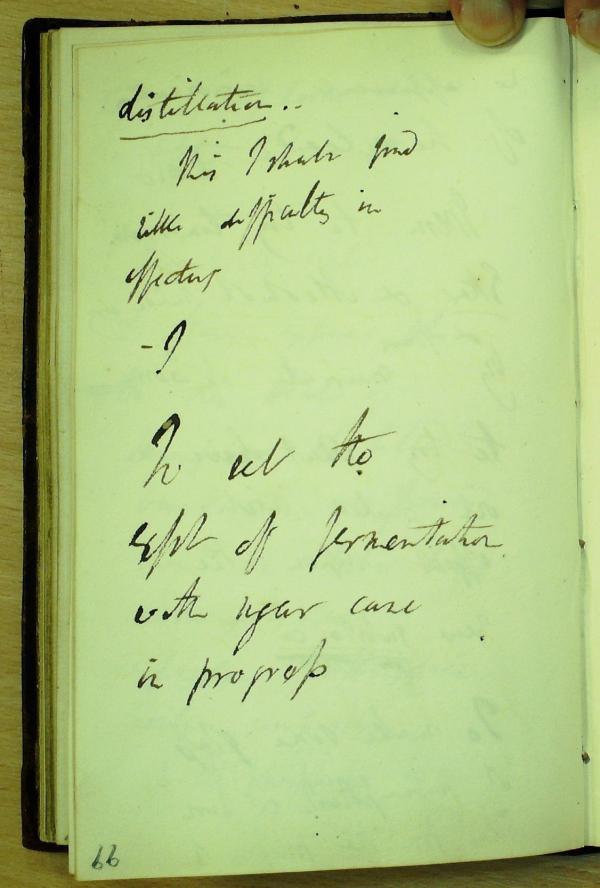 distillation. -
This I shall find
little difficulty in
effecting
- I
To set the
expt of fermentation
with sugar cane
in progress
66